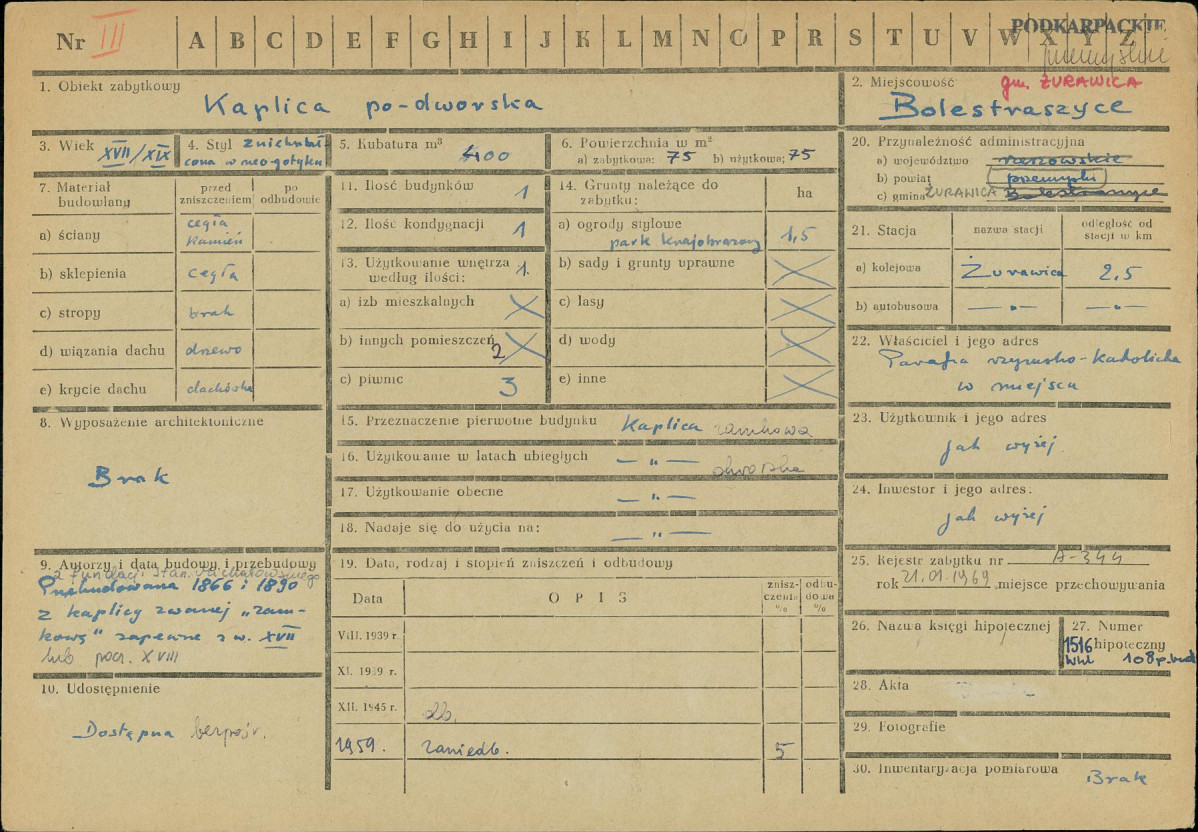 Nr III A B C D E F G H I J K L M N O P R S T U V W X Y Z
PODKARPACKIE
przemyskie
1. Obiekt zabytkowy
Kaplica po-dworska
2. Miejscowość gm. ŻURAWICA
Bolestraszyce
3. Wiek XVII/XIX
4. Styl zniekształcona w neogotyku
5. Kubatura m³ 400
6. Powierzchnia w m²
a) zabytkowa: 75 b) użytkowa: 75
7. Materiał budowlany
przed zniszczeniem
po odbudowie
a) ściany cegła kamień
b) sklepienia cegła
c) stropy brak
d) wiązania dachu drzewo
e) krycie dachu dachówka
8. Wyposażenie architektoniczne
Brak
9. Autorzy i data budowy i przebudowy
z fundacji Stan.
Przebudowana 1866 i 1890
z kaplicy zwanej „zam-
kową" zapewne z w. XVII
lub pocz. XVIII
10. Udostępnienie
Dostępna bezpośr.
11. Ilość budynków 1
12. Ilość kondygnacji 1
13. Użytkowanie wnętrza według ilości: 1.
a) izb mieszkalnych
b) innych pomieszczeń 2
c) piwnic 3
14. Grunty należące do zabytku: ha
a) ogrody stylowe
park krajobrazowy 1,5
b) sady i grunty uprawne
c) lasy
d) wody
e) inne
15. Przeznaczenie pierwotne budynku Kaplica zamkowa
16. Użytkowanie w latach ubiegłych — „ — dworska
17. Użytkowanie obecne — „ —
18. Nadaje się do użycia na: — „ —
19. Data, rodzaj i stopień zniszczeń i odbudowy
Data
OPIS
zniszczenia %
odbudowa %
VIII. 1939 r.
XI. 1939 r.
XII. 1945 r. db.
1959. zaniedb. 5
20. Przynależność administracyjna
a) województwo rzeszowskie
b) powiat przemyski
c) gmina ŻURAWICA Bolestraszyce
21. Stacja
nazwa stacji
odległość od stacji w km
a) kolejowa Żurawica 2,5
b) autobusowa — „ — — „ —
22. Właściciel i jego adres
Parafia rzymsko-katolicka
w miejscu
23. Użytkownik i jego adres
jak wyżej
24. Inwestor i jego adres:
jak wyżej
25. Rejestr zabytku nr A-344
rok 21.01.1969 miejsce przechowywania
26. Nazwa księgi hipotecznej
27. Numer hipoteczny
1516
whl 108 p.bud
28. Akta
29. Fotografie
30. Inwentaryzacja pomiarowa
Brak